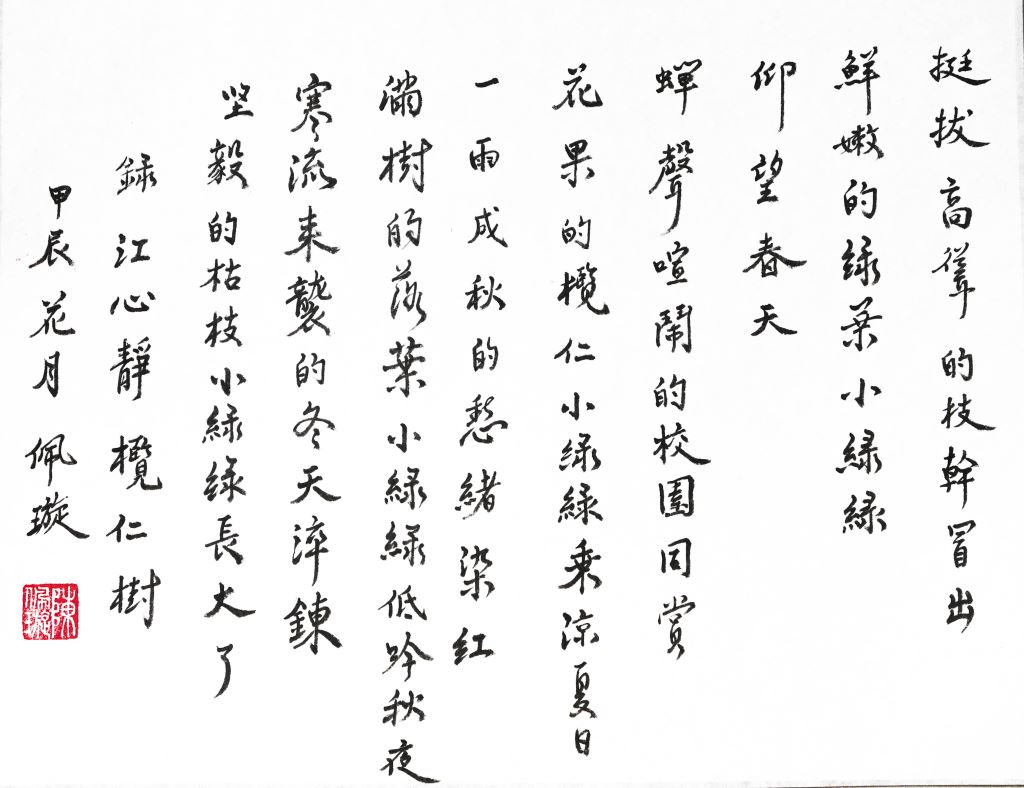 挺拔高聳的枝幹冒出
鮮嫩的綠葉小綠綠
仰望春天
蟬聲喧鬧的校園同賞
花果的欖仁小綠綠乘涼夏日
一雨成秋的愁緒染紅
滿樹的落葉小綠綠低吟秋夜
寒流來襲的冬天淬鍊
坚毅的枯枝小綠綠長大了
錄江心靜欖仁樹
甲辰花月佩璇
陳佩璇